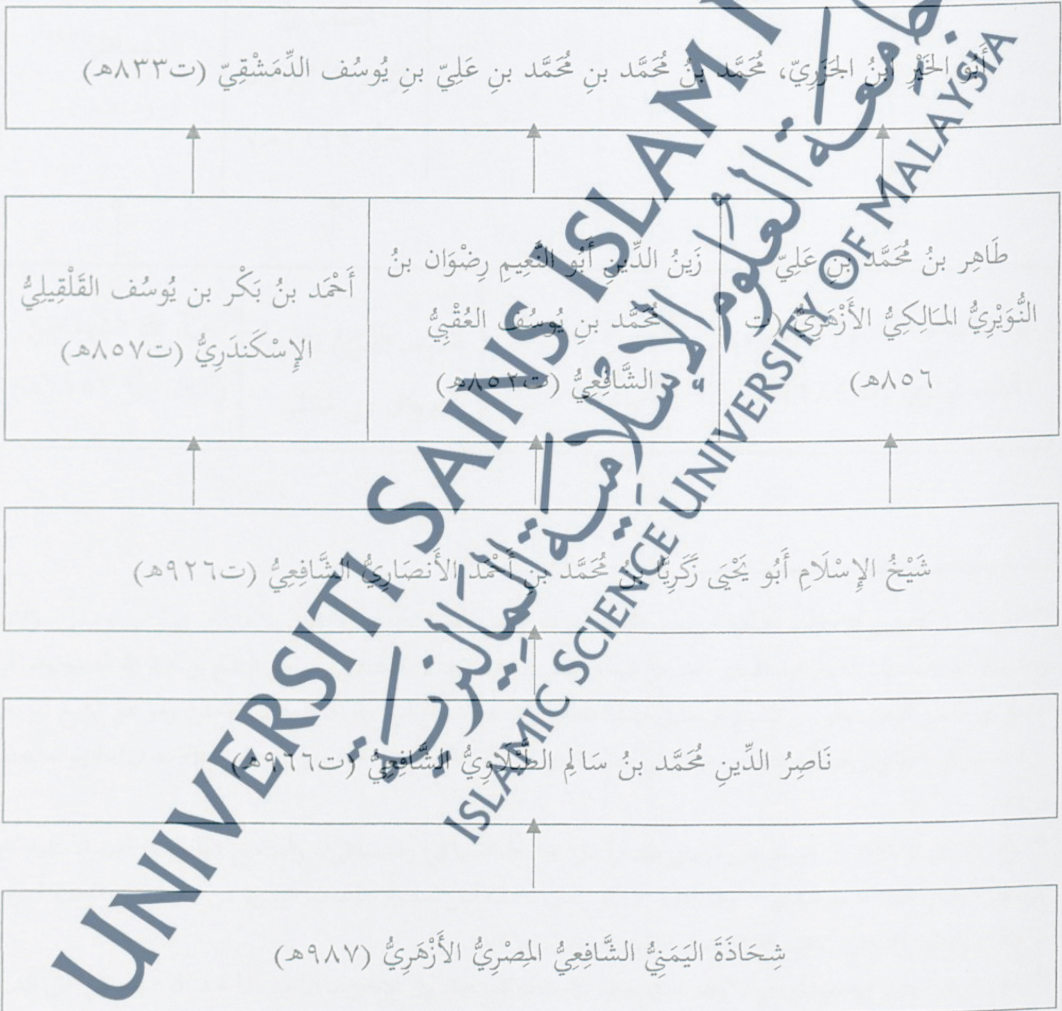 أَبُو الخَيْرِ ابْنُ الجَزَرِيّ، مُحَمَّد بنُ مُحَمَّد بنِ مُحَمَّد بنِ عَلِيّ بنِ يُوسُف الدِّمَشْقِيّ (ت٨٣٣هـ)
طَاهِر بنُ مُحَمَّد بنِ عَلِيّ
النُّوَيْرِيُّ المَالِكِيُّ الأَزْهَرِيُّ (ت
٨٥٦هـ)
زَينُ الدِّينِ أَبُو النَّعِيمِ رِضْوَان بنُ
مُحَمَّد بنِ يُوسُف العُقْبِيُّ
الشَّافِعِيُّ (ت٨٥٢هـ)
أَحْمَد بنُ بَكْر بن يُوسُف القَلْقِيلِيُّ
الإِسْكَندَرِيُّ (ت٨٥٧هـ)
شَيْخُ الإِسْلَامِ أَبُو يَحْيَى زَكَرِيَّا بنُ مُحَمَّد بنِ أَحْمَد الأَنصَارِيُّ الشَّافِعِيُّ (ت٩٢٦هـ)
نَاصِرُ الدِّينِ مُحَمَّد بنُ سَالِم الطَّبْلَاوِيُّ الشَّافِعِيُّ (ت٩٦٦هـ)
شِحَاذَةَ اليَمَنِيُّ الشَّافِعِيُّ المِصْرِيُّ الأَزْهَرِيُّ (٩٨٧هـ)
UNIVERSITI SAINS ISLAM
جامعة العلوم الإسلامية الماليزية
ISLAMIC SCIENCE UNIVERSITY OF MALAYSIA